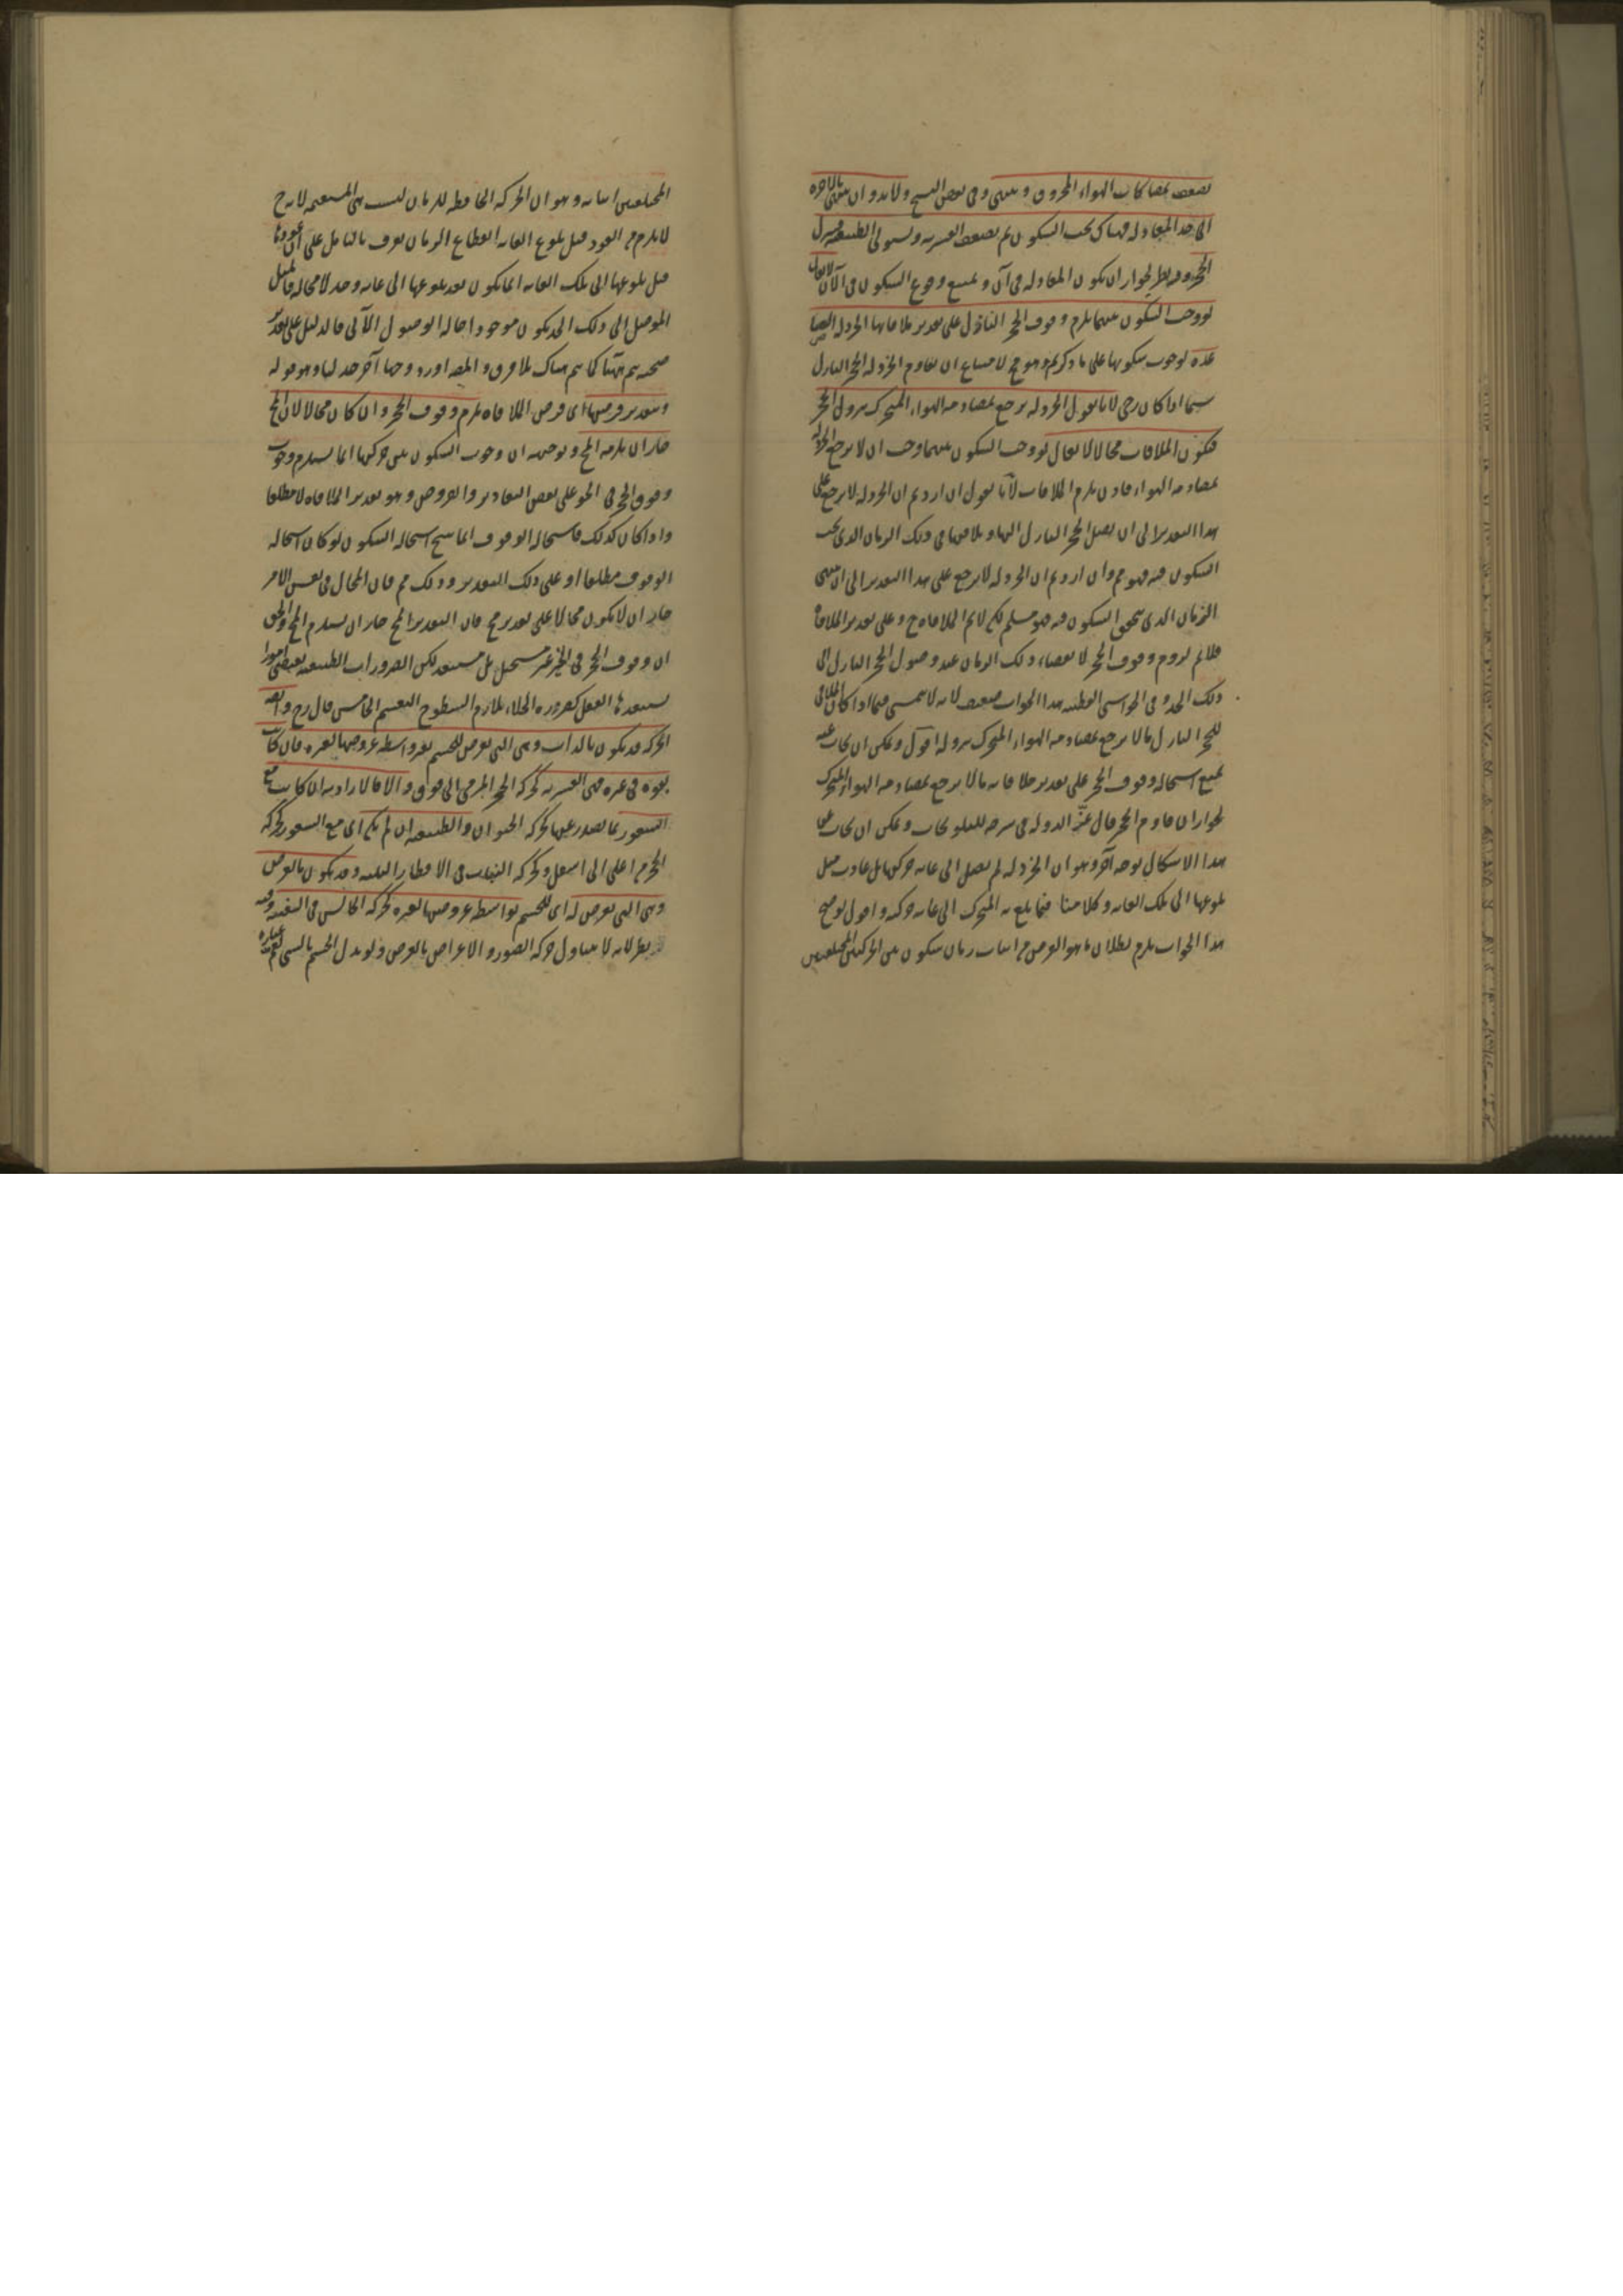 يضعف بمصاكات الهواء المخروق وينتهى وفى بعض النسخ ولابد وان ينتهى بالاخرة
الى حد المعادلة فهناك يجب السكون ثم يضعف القسرية ويستولى الطبيعة فينزل
الحجر وفيه نظر لجواز ان يكون المعادلة فى آن ويمتنع وقوع السكون فى الآن لا يقال
لو وجب السكون بينهما يلزم وقوف الحجر النازل على تقدير ملاقاتها الخردلة الصا
عدة لوجوب سكونها على ما ذكرتم وهو مح لامتناع ان يقاوم الخردلة الحجر النازل
سيما اذا كان رحى لانا نقول الخردلة يرجع بمصادمة الهواء المتحرك بنزول الحجر
فيكون الملاقات محالا لا يقال لو وجب السكون بينهما وجب ان لا يرجع الخردلة
بمصادمة الهواء فاذن يلزم الملاقات لانا نقول ان اردتم ان الخردلة لا يرجع على
هذا التقدير الى ان يصل الحجر النازل اليها ويلاقيها فى ذلك الزمان الذى يجب
السكون فيه فهو مم وان اردتم ان الخردلة لا يرجع على هذا التقدير الى ان ينتهى
الزمان الذى يتحقق السكون فيه فهو مسلم لكن لانم الملاقاة ح وعلى تقدير الملاقاة
فلانم لزوم وقوف الحجر لانقضاء ذلك الزمان عند وصول الحجر النازل الى
ذلك الحد وفى الحواشى القطبية هذا الجواب ضعيف لانه لا يتمشى فيما اذا كان الملاقى
للحجر النازل مالا يرجع بمصادمة الهواء المتحرك بنزوله اقول ويمكن ان يجاب عنه
بمنع استحالة وقوف الحجر على تقدير ملاقاته مالا يرجع بمصادمة الهواء المتحرك
لجواز ان يقاوم الحجر قال عز الدولة فى شرحه للتلويحات ويمكن ان يجاب عن
هذا الاشكال بوجه آخر وهو ان الخردلة لم يصل الى غاية حركتها بل عادت قبل
بلوغها الى تلك الغاية وكلامنا فيما بلغ به المتحرك الى غاية حركته واقول توضيح
هذا الجواب يلزم بطلان ما هو الغرض من اثبات زمان سكون بين الحركتين المختلفتين
المختلفتين اثباته وهو ان الحركة الحافظة للزمان ليست هى المستقيمة لانه ح
لا يلزم من العود قبل بلوغ الغاية انقطاع الزمان يعرف بالتأمل على ان عودها
قبل بلوغها الى تلك الغاية انما يكون بعد بلوغها الى غاية وحد لا محالة فالميل
الموصل الى ذلك الحد يكون موجودا حالة الوصول الآنى فالدليل على تقدير
صحته يتم ههنا كما يتم هناك بلا فرق والمص اورد وجها آخر جدليا وهو قوله
وبتقدير فرضها اى فرض الملاقاة يلزم وقوف الحجر وان كان محالا لان المح
جاز ان يلزمه المح وتوجيهه ان وجوب السكون بين حركتها انما يستلزم وجوب
وقوف الحجر فى الجو على بعض التقادير والفروض وهو تقدير الملاقاة لا مطلقا
واذا كان كذلك فاستحالة الوقوف انما ينتج استحالة السكون لو كان استحالة
الوقوف مطلقا او على ذلك التقدير وذلك مم فان المحال فى نفس الامر
جاز ان لا يكون محالا على تقدير مح فان التقدير المح جاز ان يستلزم المح والحق
ان وقوف الحجر فى الحيز غير مستحيل بل مستبعد لكن الضرورات الطبيعية يقتضى امورا
يستبعدها العقل كضرورة الخلاء بتلازم السطوح التقسيم الخامس قال رح وايضا
الحركة قد يكون بالذات وهى التى يعرض للجسم بغير واسطة عروضها لغيره فان كانت
بقوة فى غيره فهى القسرية كحركة الحجر المرمى الى فوق والا فالارادية ان كانت مع
الشعور بما يصدر عنها كحركة الحيوان والطبيعية ان لم يكن اى مع الشعور كحركة
الحجر من اعلى الى اسفل وكحركة النبات فى الاقطار الثلثة وقد يكون بالعرض
وهى التى يعرض له اى للجسم بواسطة عروضها لغيره كحركة الجالس فى السفينة وفيه
نظر لانه لا يتناول حركة الصور والاعراض بالعرض ولو بدل الجسم بالشى